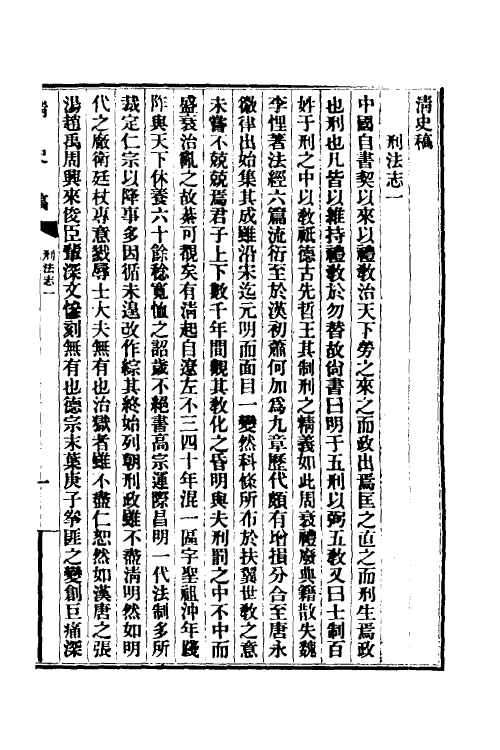 清史稿
刑法志一
中國自書契以來以禮敎治天下勞之來之而政出焉匡之直之而刑生焉政
也刑也凡皆以維持禮敎於勿替故尙書曰明于五刑以弼五敎又曰士制百
姓于刑之中以敎祗德古先哲王其制刑之精義如此周衰禮廢典籍散失魏
李悝著法經六篇流衍至於漢初蕭何加爲九章歷代頗有增損分合至唐永
徽律出始集其成雖沿宋迄元明而面目一變然科條所布於扶翼世敎之意
未嘗不兢兢焉君子上下數千年間觀其敎化之昏明與夫刑罰之中不中而
盛衰治亂之故綦可覩矣有淸起自遼左不三四十年混一區宇聖祖沖年踐
阼與天下休養六十餘稔寬恤之詔歲不絕書高宗運際昌明一代法制多所
裁定仁宗以降事多因循未遑改作綜其終始列朝刑政雖不盡淸明然如明
代之廠衛廷杖專意戮辱士大夫無有也治獄者雖不盡仁恕然如漢唐之張
湯趙禹周興來俊臣輩深文慘刻無有也德宗末葉庚子拳匪之變創巨痛深
清史稿
刑法志一
一